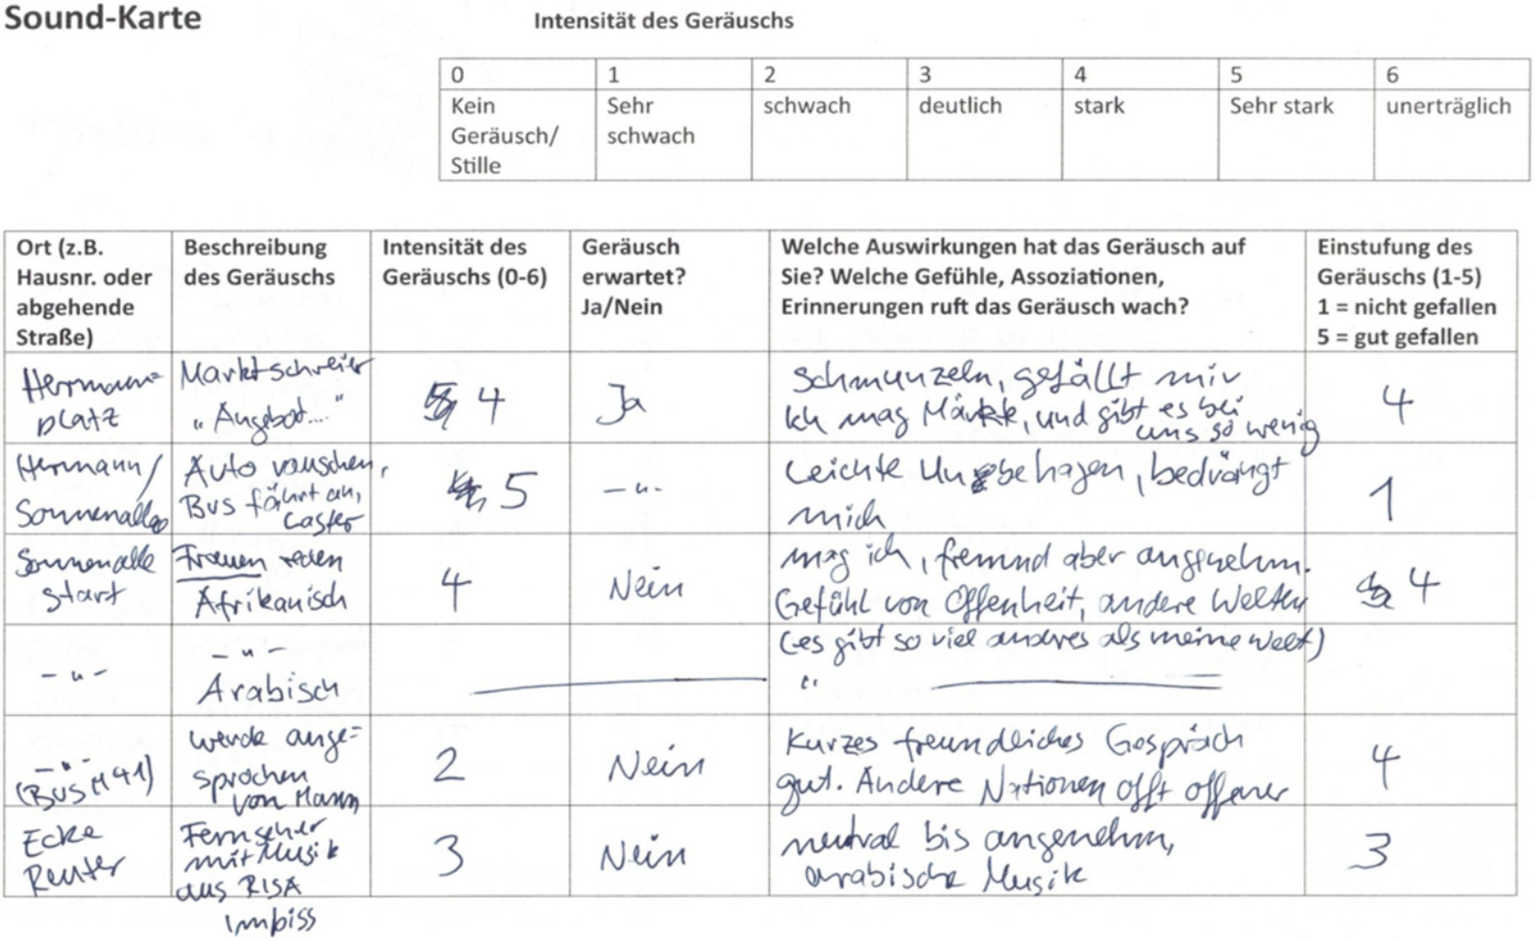 Sound-Karte
Intensität des Geräuschs
0 1 2 3 4 5 6
Kein Geräusch/ Stille
Sehr schwach
schwach
deutlich
stark
Sehr stark
unerträglich
Ort (z.B. Hausnr. oder abgehende Straße)
Beschreibung des Geräuschs
Intensität des Geräuschs (0-6)
Geräusch erwartet? Ja/Nein
Welche Auswirkungen hat das Geräusch auf Sie? Welche Gefühle, Assoziationen, Erinnerungen ruft das Geräusch wach?
Einstufung des Geräuschs (1-5) 1 = nicht gefallen 5 = gut gefallen
Hermann=
platz
Marktschreier
"Angebot..."
4
Ja
Schmunzeln, gefällt mir
Ich mag Märkte, und gibt es bei
uns so wenig
4
Hermann/
Sonnenallee
Auto rauschen,
Bus fährt an,
Laster
5
-"-
Leichte Unbehagen, bedrängt
mich
1
Sonnenalle
start
Frauen reden
Afrikanisch
4
Nein
mag ich, fremnd aber angenehm.
Gefühl von Offenheit, andere Welten
4
-"-
-"-
Arabisch
(es gibt so viel anderes als meine Welt)
"
-"-
(Bus M41)
werde ange=
sprochen
von Mann
2
Nein
Kurzes freundliches Gespräch
gut. Andere Nationen offt offener
4
Ecke
Reuter
Fernseher
mit Musik
aus RISA
Imbiss
3
Nein
neutral bis angenehm,
arabische Musik
3